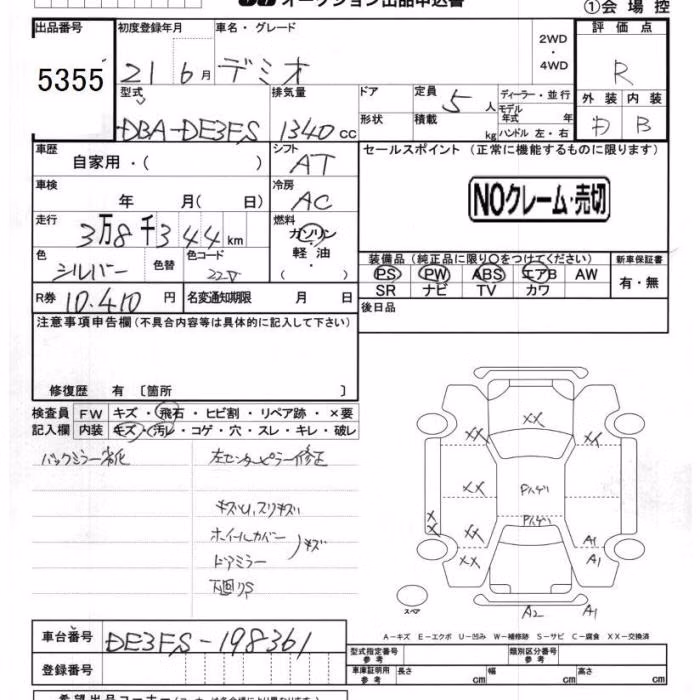 オークション出品申込書
①会場控
出品番号 初度登録年月 車名・グレード 評価点
5355 21 6月 デミオ 2WD・4WD R
型式 排気量 ドア 定員 ディーラー・並行 外装 内装
5人 モデル
DBA-DE3FS 1340cc 形状 積載 kg 年式 年 B
ハンドル 左・右
車歴 シフト セールスポイント(正常に機能するものに限ります)
自家用・( ) AT
車検 冷房 NOクレーム・売切
年 月(日) AC
走行 燃料
3万8千344km ガソリン・軽油・( )
色 色替 色コード 装備品(純正品に限り○をつけてください) 新車保証書
シルバー 22V PS PW ABS エアB AW 有・無
SR ナビ TV カワ
R券 10.410円 名変通知期限 月 日 後日品
注意事項申告欄(不具合内容等は具体的に記入して下さい)
修復歴 有〔箇所 〕
検査員 FW キズ・飛石・ヒビ割・リペア跡・×要
記入欄 内装 キズ・汚レ・コゲ・穴・スレ・キレ・破レ
バックミラー劣化 左センターピラー修正
キズU,スリキズ
ホイールカバー
ドアミラー )キズ
下廻りS
XX
XX XX
XX Pハゲリ
Pハゲリ
XX XX A1
XX A1
スペア A2 A1
A-キズ E-エクボ U-凹み W-補修跡 S-サビ C-腐食 XX-交換済
車台番号 DE3FS-198361
型式指定番号 参考 類別区分番号 参考
登録番号 車庫証明用 参考 長さ cm 幅 cm 高さ cm